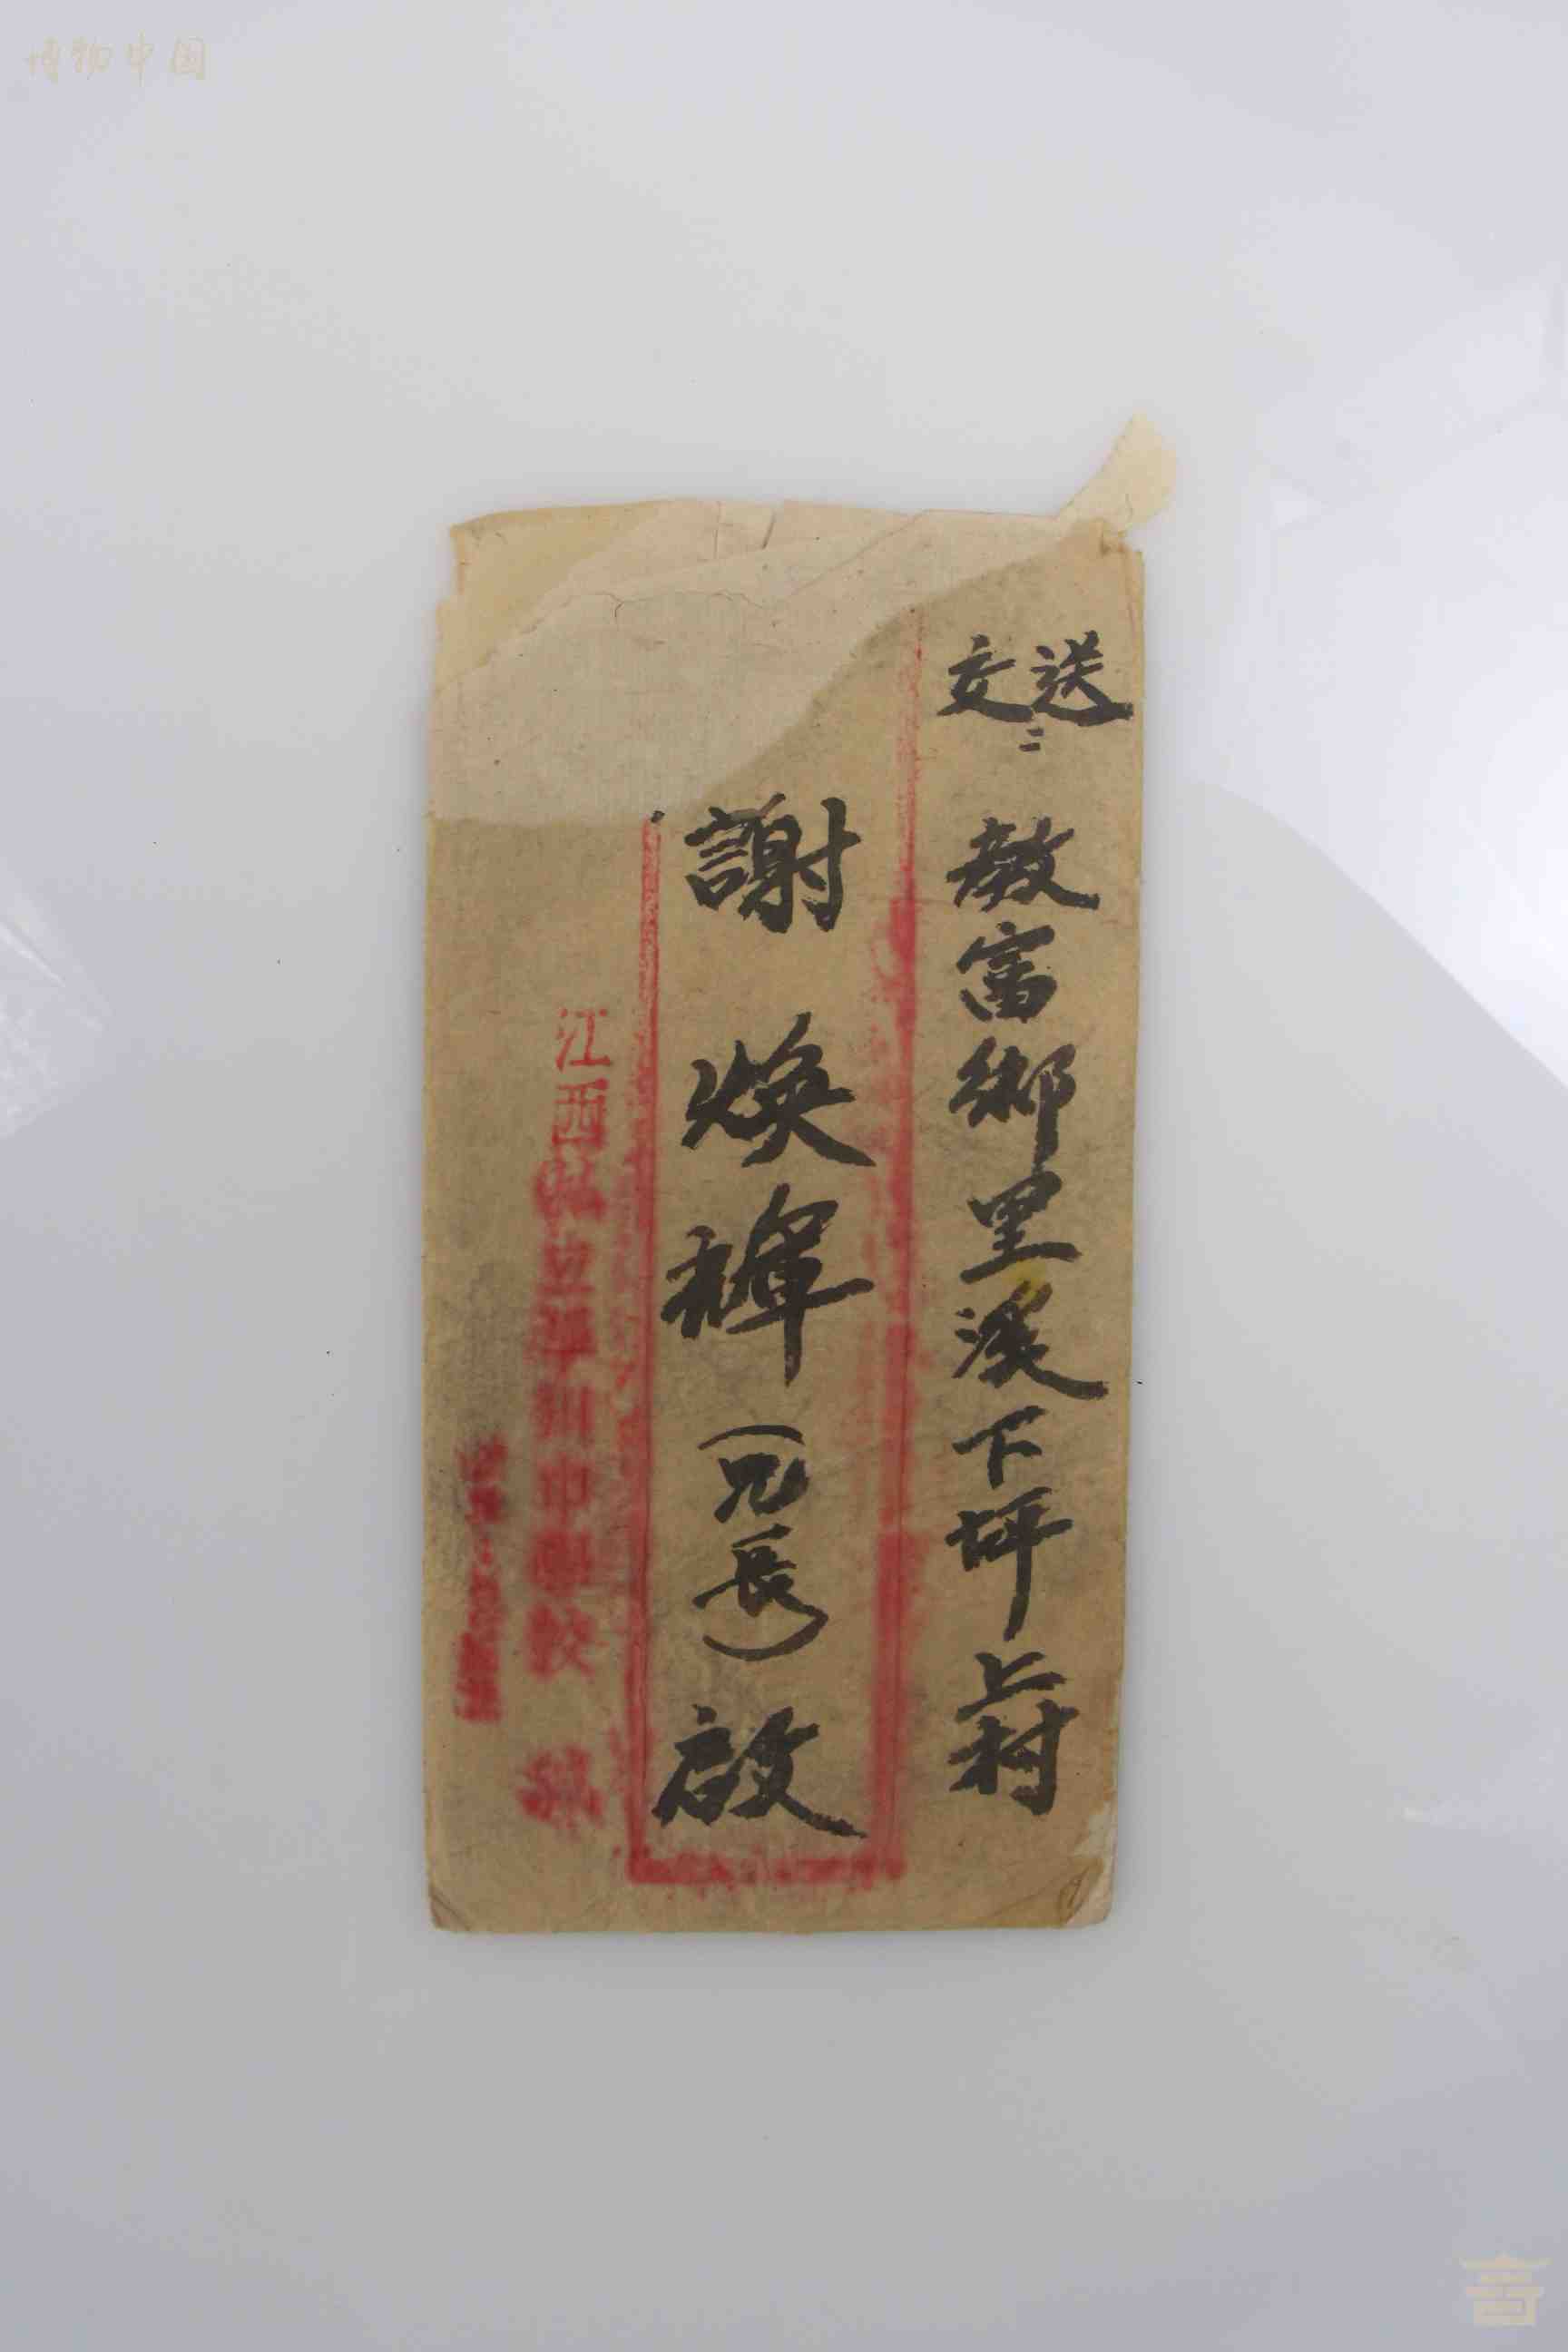 博物中国
送交
教富鄉里溪下坪上村
謝煥樟（兄長）啟
江西私立 川中學校